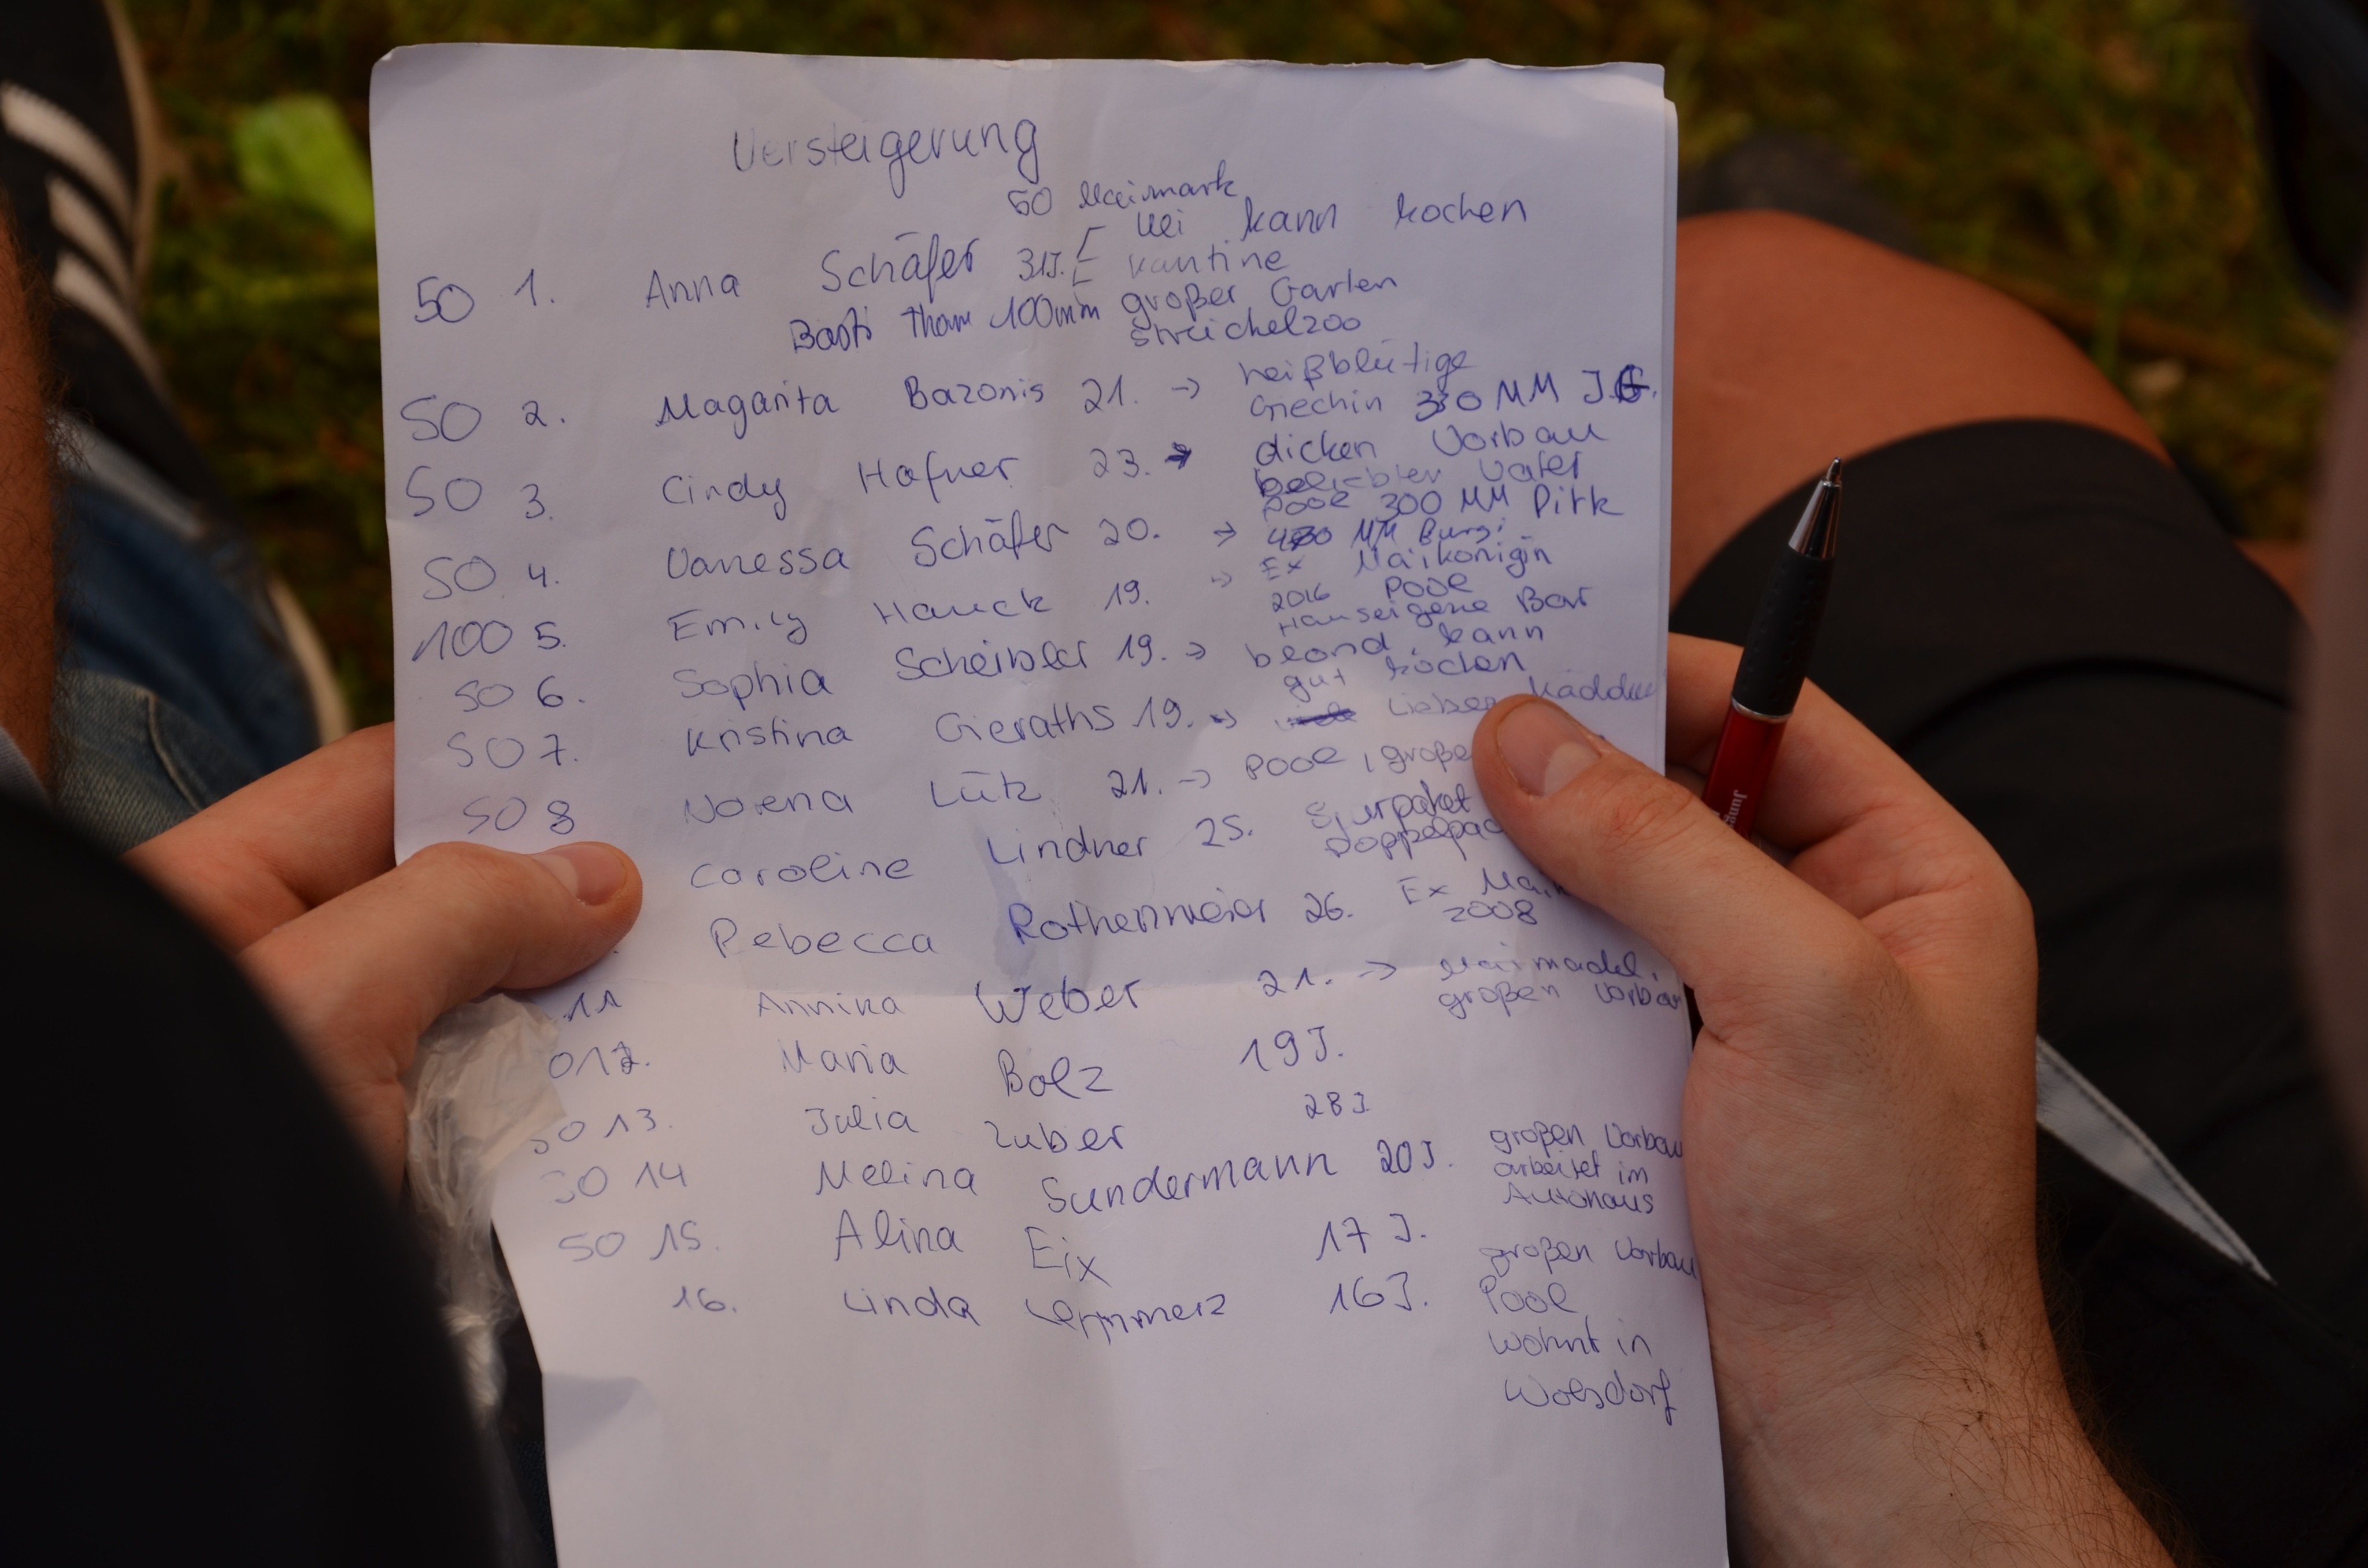 Versteigerung
50 Maimark
50 1. Anna Schäfer 31J. kann kochen
Kantine
Basti Thom 100mm großer Garten
Streichelzoo
50 2. Magarita Bazonis 21. → heißblütige
Giechin 330 MM J.G.
50 3. Cindy Hafner 23. → dicken Vorbau
beliebter Vater
Pool 300 MM Dirk
50 4. Vanessa Schäfer 20. → MM Burgi
Ex Maikönigin
100 5. Emily Hauck 19. → 2016 Pool
Hauseigene Bar
50 6. Sophia Scheibler 19. → blond, kann
gut kochen
50 7. Kristina Gieraths 19. → Lieber
50 8 Lütz 21. → Pool, große
Caroline Lindner 25.
Rebecca Rothenmeier 26. Ex
2008
11 Annika Weber 21. → Maimädel,
großen Vorbau
12. Maria Bolz 19J.
13. Julia Zuber 28J.
14 Melina Sundermann 20J. großen Vorbau
arbeitet im
Autohaus
50 15. Alina Eix 17 J. großen Vorbau
16. Linda 16J. Pool
wohnt in
Wolsdorf
Jung